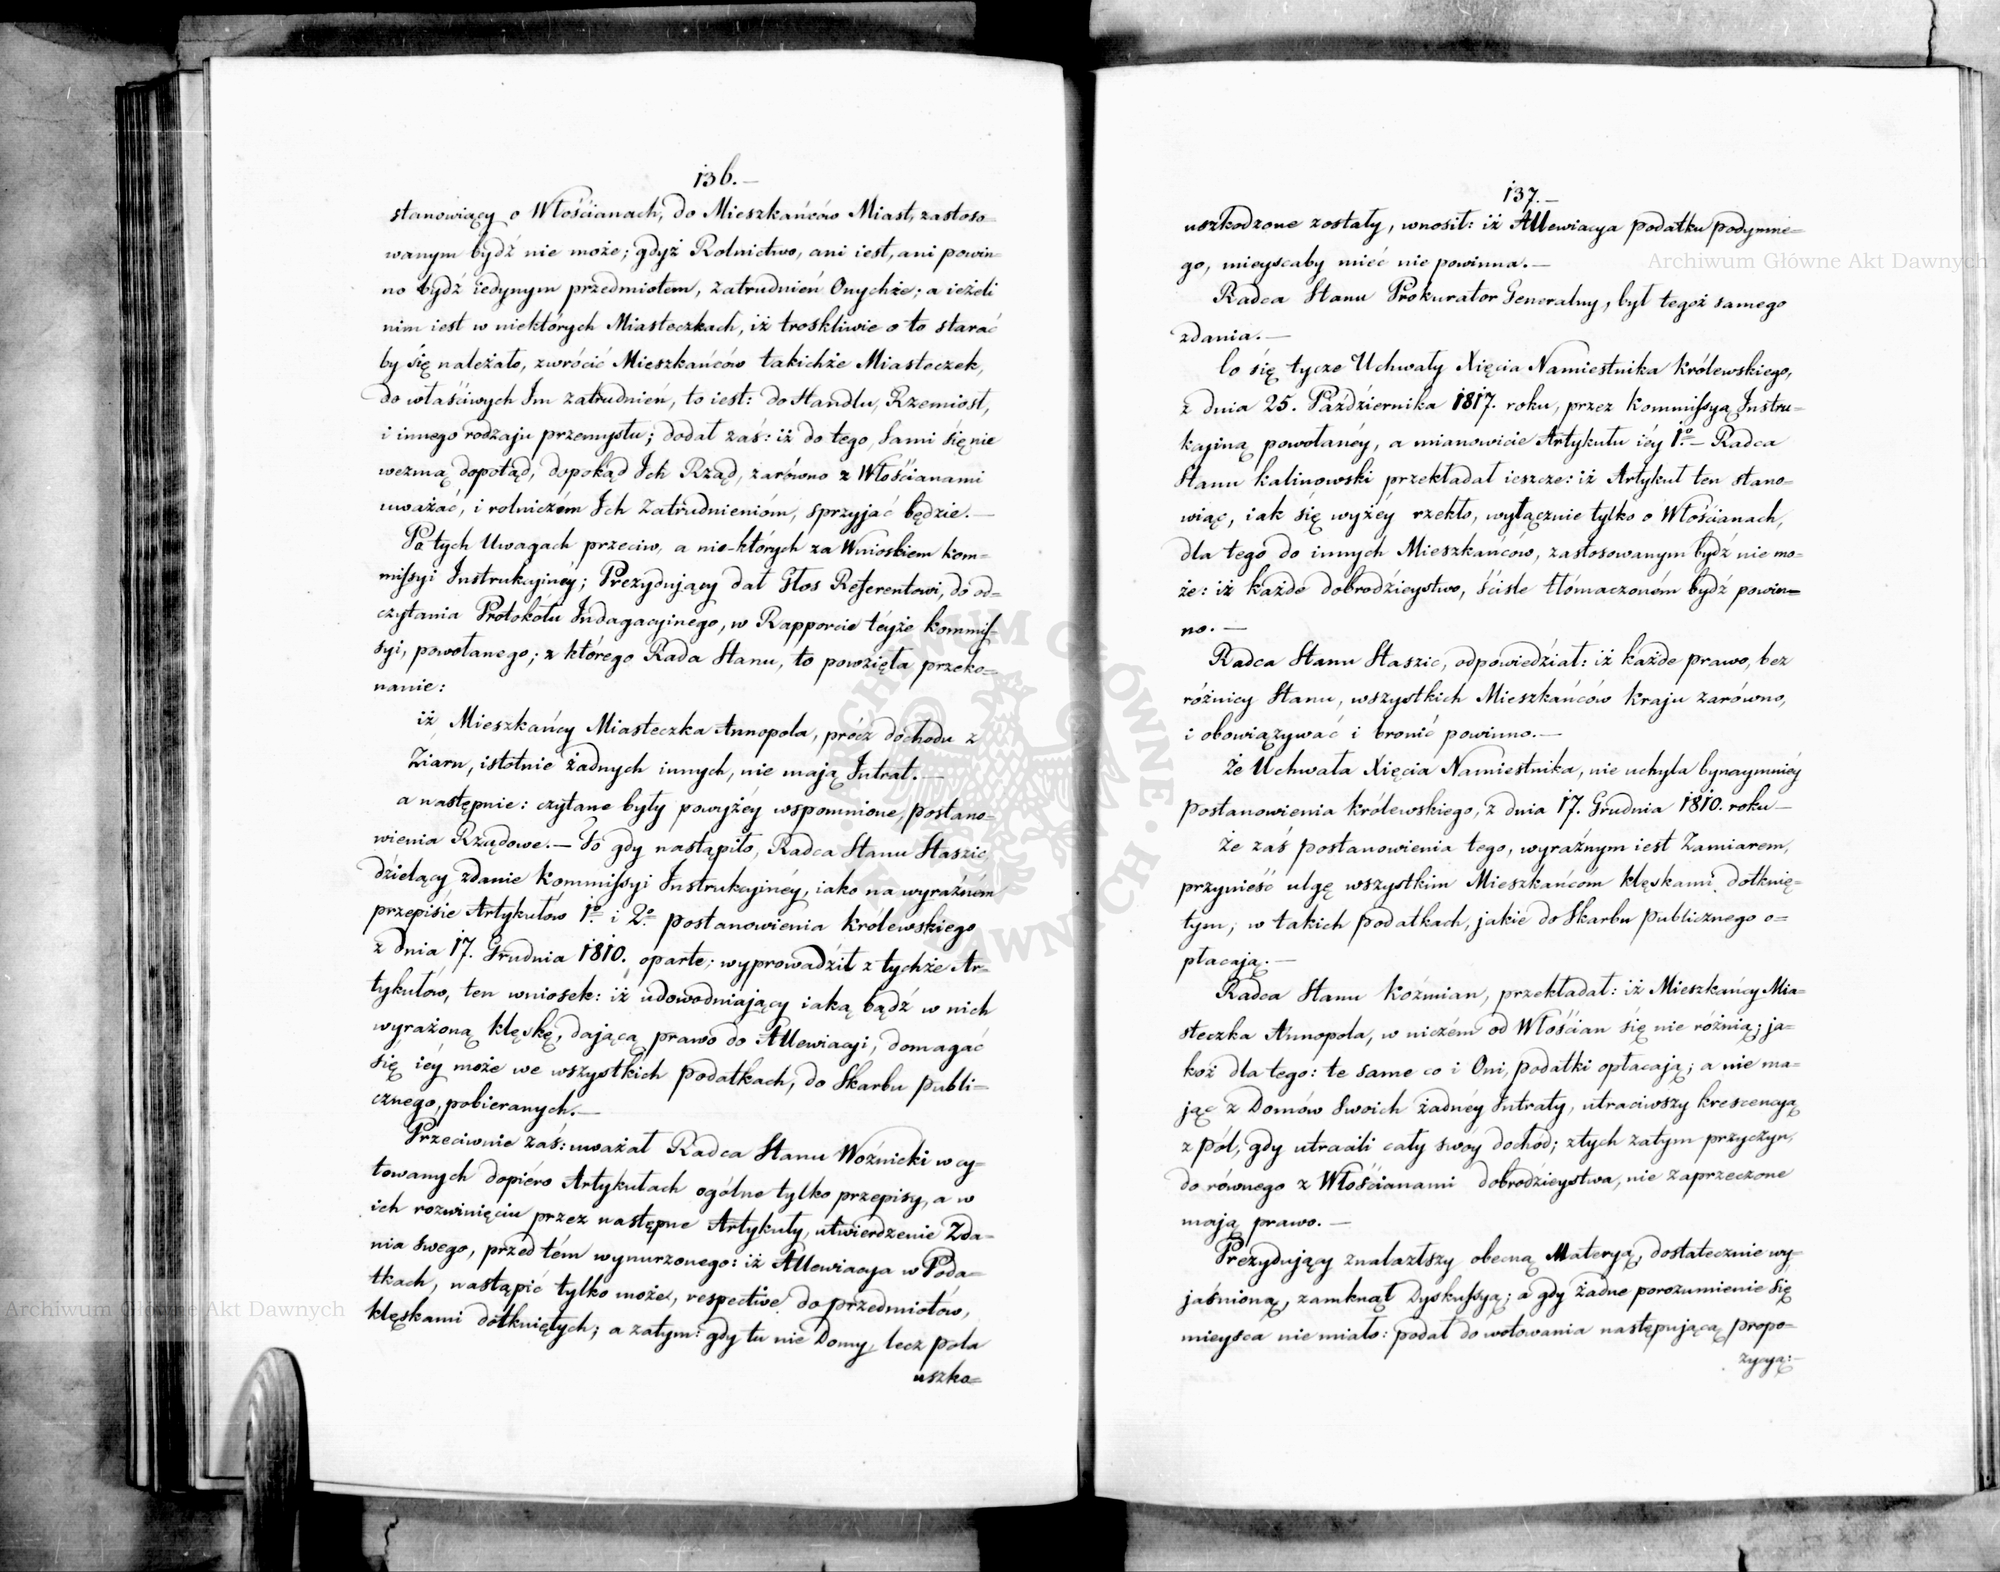 136.—
stanowiący o Włościanach, do Mieszkańców Miast, zastoso=
wanym bydź nie może; gdyż Rolnictwo, ani iest, ani powin=
no bydź iedynym przedmiotem, zatrudnień Onychże; a ieżeli
nim iest w niektórych Miasteczkach, iż troskliwie o to starać
by się należało, zwrócić Mieszkańców takichże Miasteczek,
do właściwych Im zatrudnień, to iest: do Handlu, Rzemiost,
i innego rodzaju przemysłu; dodał zaś: iż do tego, Sami się nie
wezmą dopotąd, dopokąd Ich Rząd, zarówno z Włościanami
uważać, i rolniczém Ich Zatrudnieniom, sprzyjać będzie.—
Po tych Uwagach przeciw, a nie-których za Wnioskiem Kom=
missyi Instrukcyinéy; Prezydujący dał Głos Referentowi, do od=
czytania Protokółu Indagacyinego, w Rapporcie téyże Kommis=
syi, powołanego; z którego Rada Stanu, to powzięła przeko=
nanie:
iż Mieszkańcy Miasteczka Annopola, prócz dochodu z
Ziarn, istotnie żadnych innych, nie mają Intrat.—
a następnie: czytane były powyżéy wspomnione, postano=
wienia Rządowe.— To gdy nastąpiło, Radca Stanu Staszic,
dzielący zdanie Kommissyi Instrukcyinéy, iako na wyraźném
przepisie Artykułów 1º i 2º postanowienia Królewskiego
z dnia 17. Grudnia 1810. oparte; wyprowadził z tychże Ar=
tykułów, ten wniosek: iż udowodniający iaką bądź w nich
wyrażoną klęskę, dającą prawo do Allewiacyi, domagać
się iéy może we wszystkich podatkach, do Skarbu publi=
cznego, pobieranych.—
Przeciwnie zaś: uważał Radca Stanu Woźnicki w cy=
towanych dopiéro Artykułach ogólne tylko przepisy, a w
ich rozwinięciu przez następne Artykuły, utwierdzenie Zda=
nia swego, przed tém wynurzonego: iż Allewiacya w Poda=
tkach, nastąpić tylko może, respective do przedmiotów,
klęskami dotkniętych; a zatym: gdy tu nie Domy, lecz pola
uszko=
137.—
uszkodzone zostały, wnosił: iż Allewiacya podatku podymne=
go, mieyscaby mieć nie powinna.—
Radca Stanu Prokurator Generalny, był tegoż samego
zdania.—
Co się tycze Uchwały Xięcia Namiestnika Królewskiego,
z dnia 25. Października 1817. roku, przez Kommissyą Instru=
kcyiną powołanéy, a mianowicie Artykułu iéy 1º.— Radca
Stanu Kalinowski przekładał ieszcze: iż Artykuł ten stano=
wiąc, iak się wyżéy rzekło, wyłącznie tylko o Włościanach,
dla tego do innych Mieszkańców, zastosowanym bydź nie mo=
że: iż każde dobrodzieystwo, ściśle tłómaczoném bydź powin=
no.—
Radca Stanu Staszic, odpowiedział: iż każde prawo, bez
różnicy Stanu, wszystkich Mieszkańców kraju zarówno,
i obowiązywać i bronić powinno.—
Że Uchwała Xięcia Namiestnika, nie uchyla bynaymniéy
postanowienia Królewskiego, z dnia 17. Grudnia 1810. roku—
Że zaś postanowienia tego, wyraźnym iest Zamiarem,
przynieść ulgę wszystkim Mieszkańcóm klęskami dotknię=
tym, w takich podatkach, jakie do Skarbu publicznego o=
płacają.—
Radca Stanu Koźmian, przekładał: iż Mieszkańcy Mia=
steczka Annopola, w niczém od Włościan się nie różnią; ja=
koż dla tego: te same co i Oni, podatki opłacają; a nie ma=
jąc z Domów Swoich żadnéy Intraty, utraciwszy krescencyą
z pól, gdy utracili cały swóy dochód; z tych zatym przyczyn,
do równego z Włościanami dobrodzieystwa, nie zaprzeczone
mają prawo.—
Prezydujący znalazłszy obecną Materyą, dostatecznie wy=
jaśnioną, zamknął Dyskussyą; a gdy żadne porozumienie się
mieysca nie miało: podał do wotowania następującą propo=
zycyą:—
Archiwum Główne Akt Dawnych
Archiwum Główne Akt Dawnych
ARCHIWUM GŁÓWNE AKT DAWNYCH